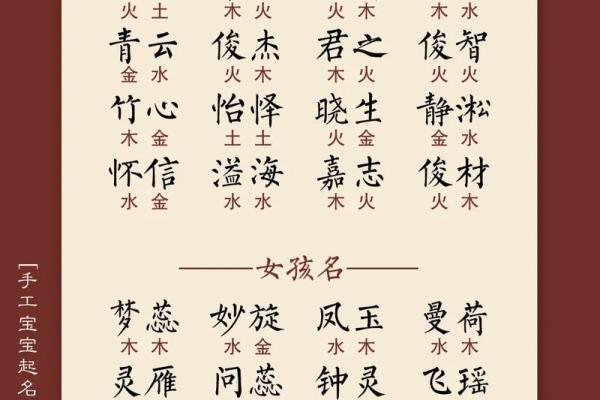 火土 木火 火木 木水
青云 俊杰 君之 俊智
金水 火木 木火 火火
竹心 怡怿 晓生 静淞
木金 土土 火金 金水
怀信 溢海 嘉志 俊材
水金 水水 木火 火木
女孩名
梦蕊 妙旋 凤玉 曼荷
木木 水金 水木 水木
灵雁 问蕊 钟灵 飞瑶
[手工宝宝起名